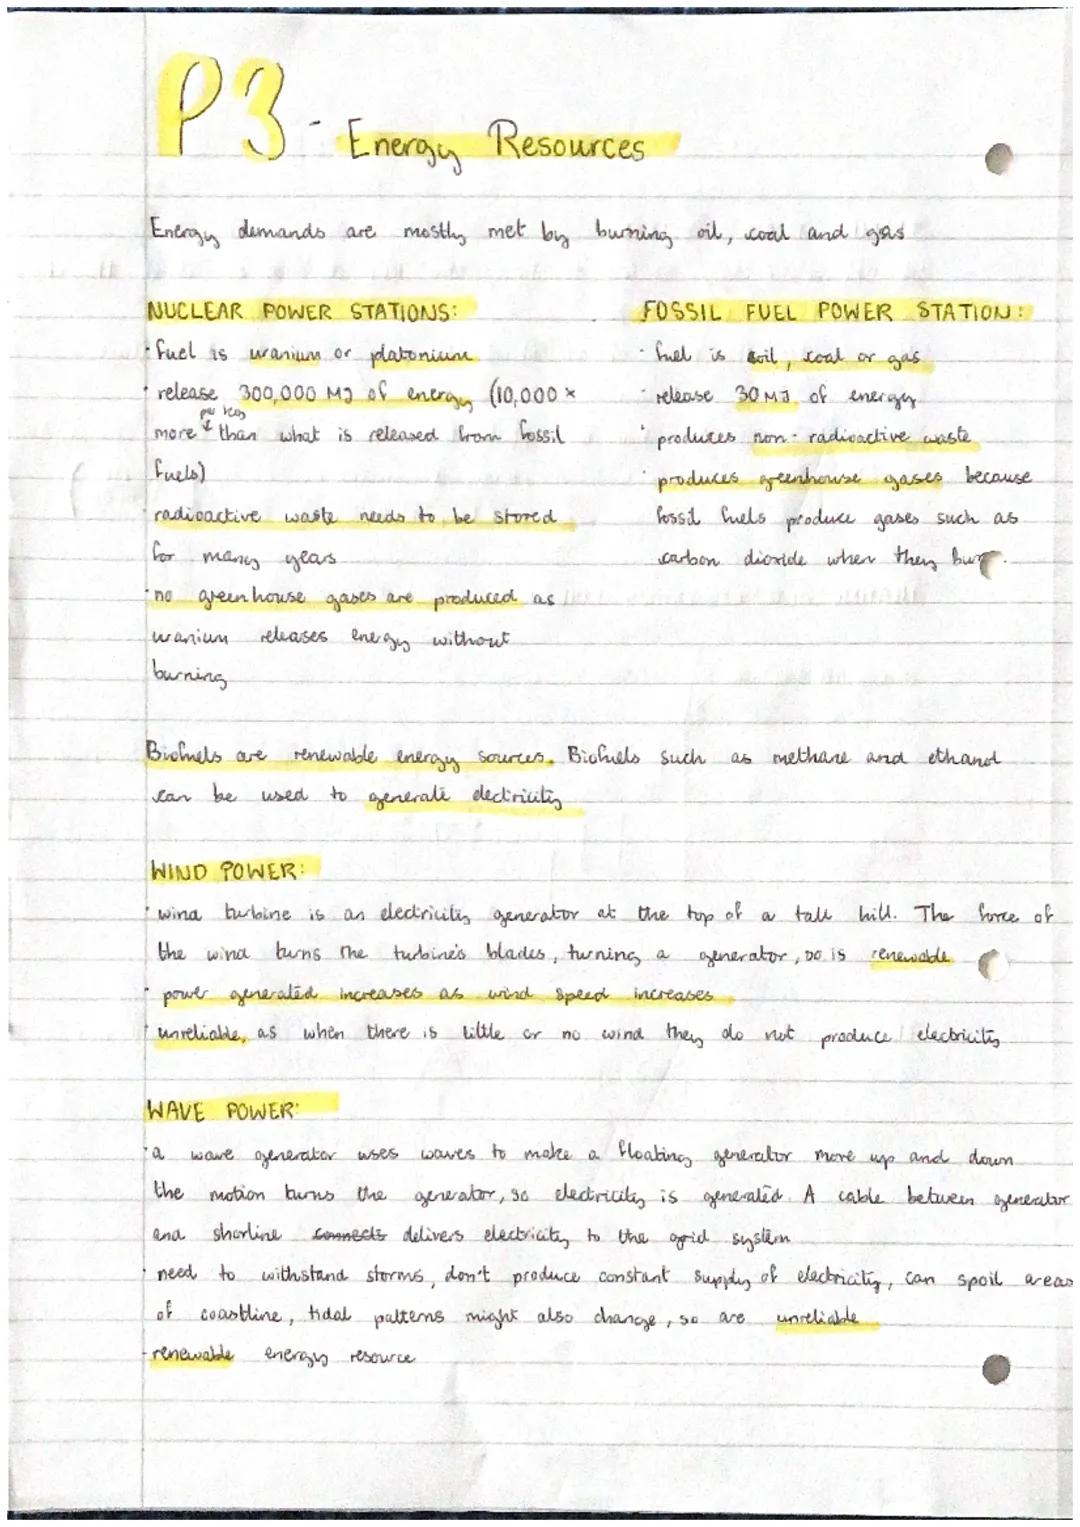 P3 - Energy Resources
Energy demands are mostly met by burning oil, coal and gas
NUCLEAR POWER STATIONS:
· fuel is uranium or platonium
· release 300,000 MJ of energy (10,000 ×
per kg
more than what is released from fossil
fuels)
radioactive waste needs to be stored
for many years
· no greenhouse gases are produced as
uranium releases energy without
burning
FOSSIL FUEL POWER STATION:
· fuel is oil, coal or gas
· release 30 MJ of energy
· produces non-radioactive waste
· produces greenhouse gases because
fossil fuels produce gases such as
carbon dioxide when they burn.
Biofuels are renewable energy sources. Biofuels such as methane and ethanol
can be used to generate electricity
WIND POWER:
· wind turbine is an electricity generator at the top of a tall hill. The force of
the wind turns the turbine's blades, turning a generator, so is renewable
· power generated increases as wind speed increases
· unreliable, as when there is little or no wind they do not produce electricity
WAVE POWER:
· a wave generator uses waves to make a floating generator move up and down
the motion turns the generator, so electricity is generated. A cable between generator
and shorline connects delivers electricity to the grid system
· need to withstand storms, don't produce constant supply of electricity, can spoil areas
of coastline, tidal patterns might also change, so are unreliable
· renewable energy resource